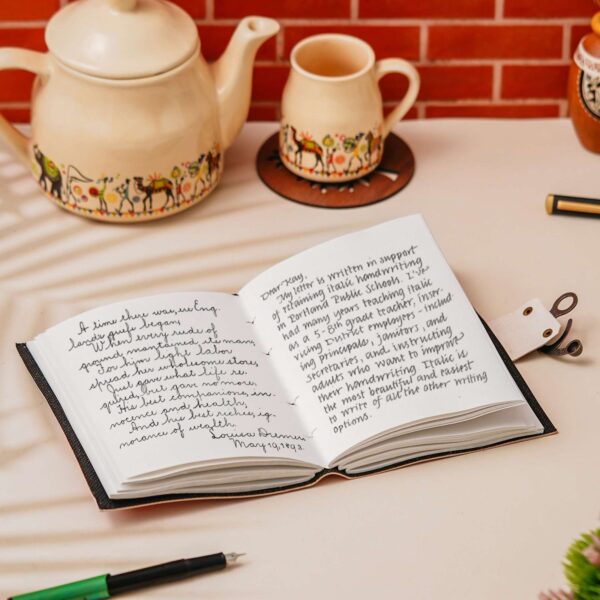 A time there was, ere Eng.
land's griefs began,
When every rude of
ground maintained its man;
For him light labor
spread her wholesome store,
Just gave what life re.
quired, but gave no more;
His best companions, in.
nocence and health,
And his best riches, ig.
norance of wealth.
Louisa
May 19, 1893.
Dear Kay,
My letter is written in support
of retaining italic handwriting
in Portland Public Schools. I've
had many years teaching italic
as a 5-8th grade teacher, inser-
vicing District employees - includ-
ing principals, janitors, and
secretaries, and instructing
adults who want to improve
their handwriting. Italic is
the most beautiful and easiest
to write of all the other writing
options.